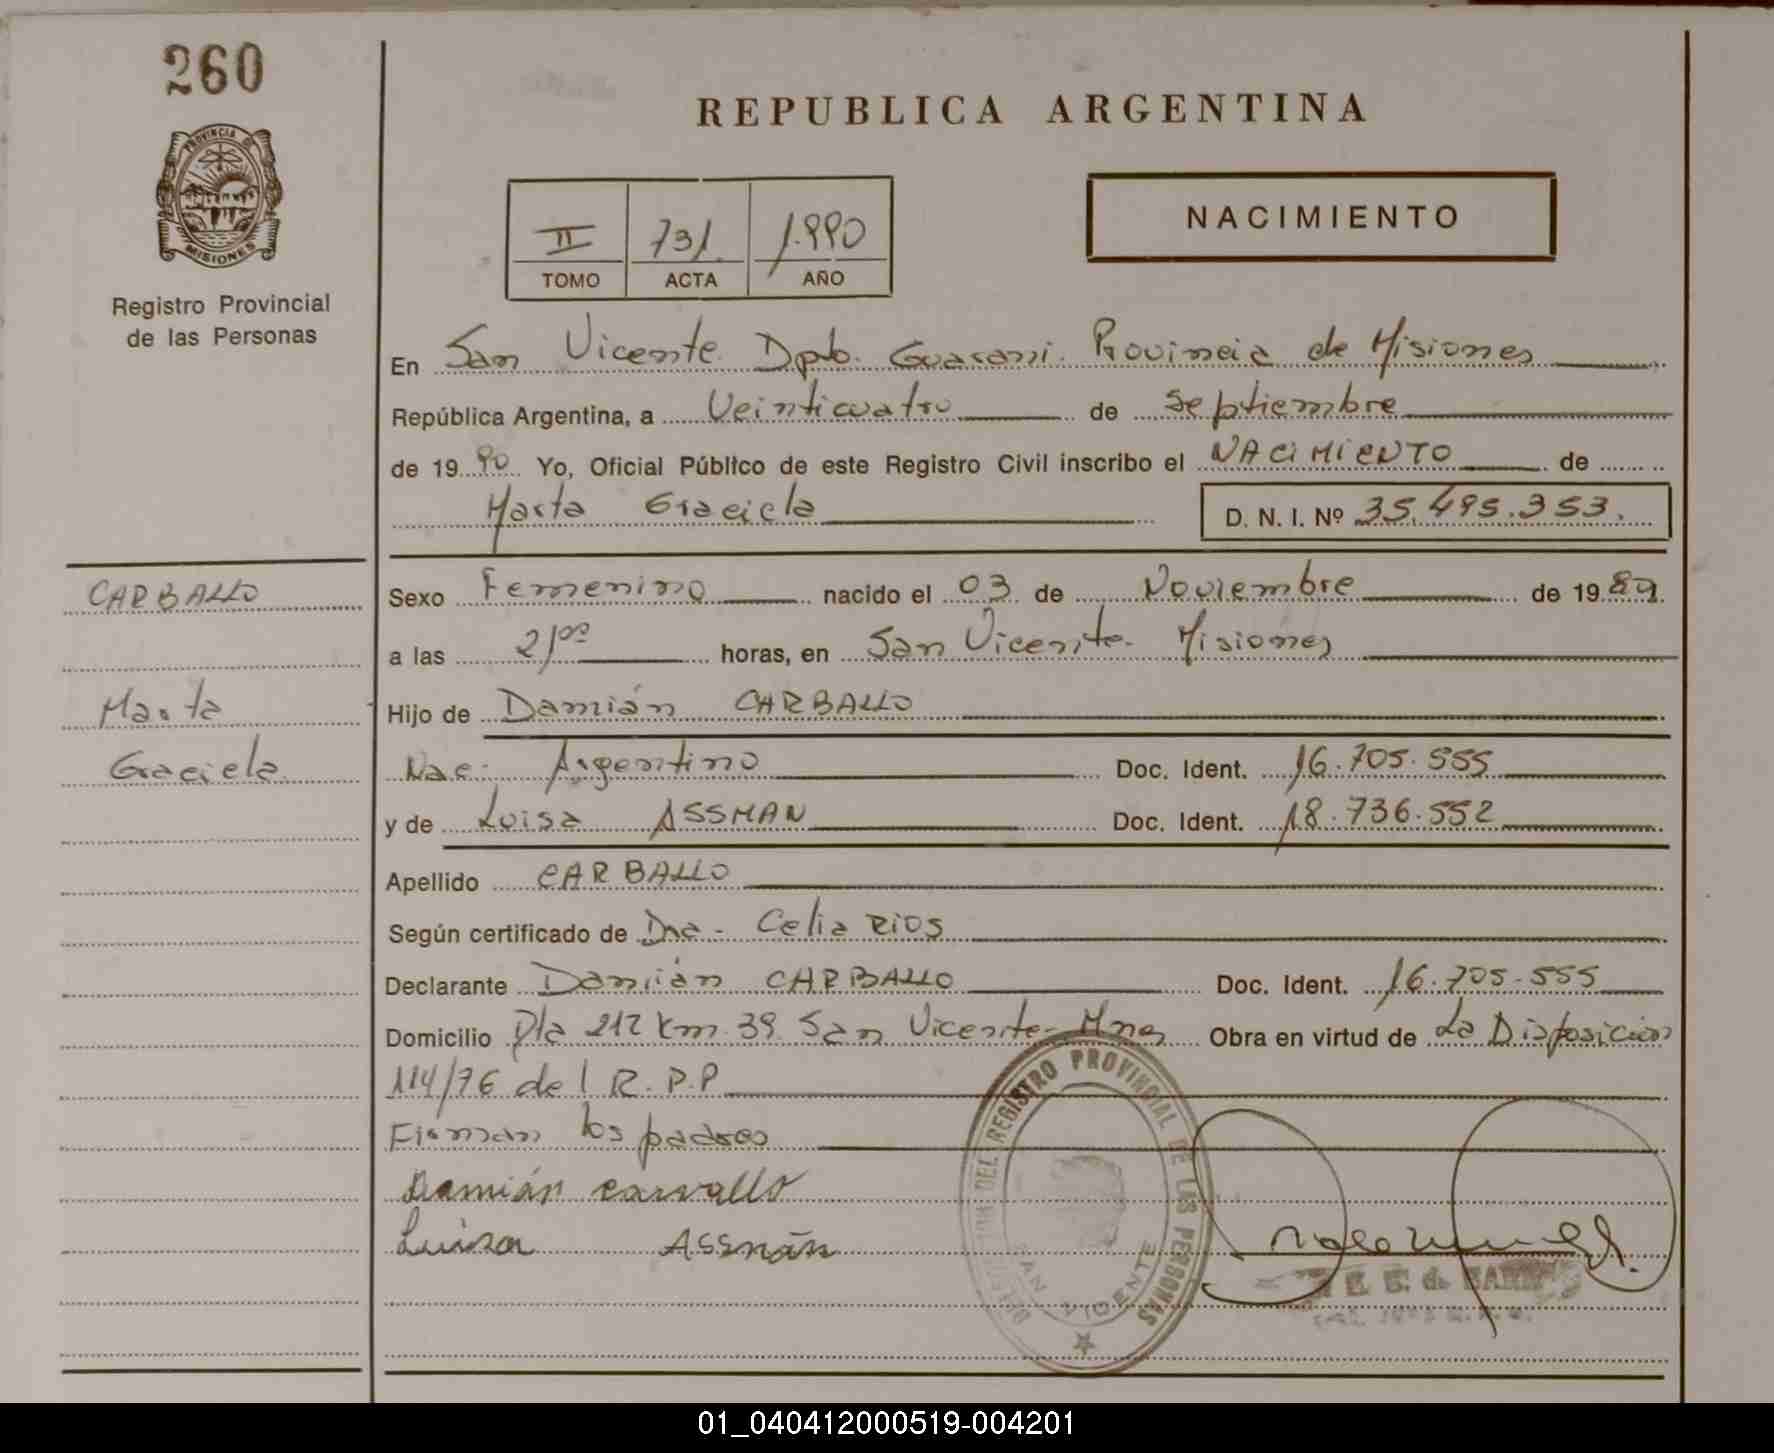 260
PROVINCIA DE
MISIONES
Registro Provincial
de las Personas
REPUBLICA ARGENTINA
II 731 1.990
TOMO ACTA AÑO
NACIMIENTO
En San Vicente Dpto. Guarani. Provincia de Misiones
República Argentina, a Veinticuatro de Septiembre
de 1990 Yo, Oficial Público de este Registro Civil inscribo el NACIMIENTO de
Marta Graciela D. N. I. Nº 35.495.353.
CARBALLO
Marta
Graciela
Sexo Femenino nacido el 03 de Noviembre de 1989
a las 21,00 horas, en San Vicente- Misiones
Hijo de Damián CARBALLO
Nac: Argentino Doc. Ident. 16.705.555
y de Luisa ASSMAN Doc. Ident. 18.736.552
Apellido CARBALLO
Según certificado de Dra- Celia RIOS
Declarante Damián CARBALLO Doc. Ident. 16.705.555
Domicilio Pla 212 Km. 39. San Vicente- Mnes Obra en virtud de La Disposición
114/76 del R.P.P
Firman los padres
Damián carvallo
Luisa Assmán
DELEGACION DEL REGISTRO PROVINCIAL DE LAS PERSONAS
SAN VICENTE
01_040412000519-004201